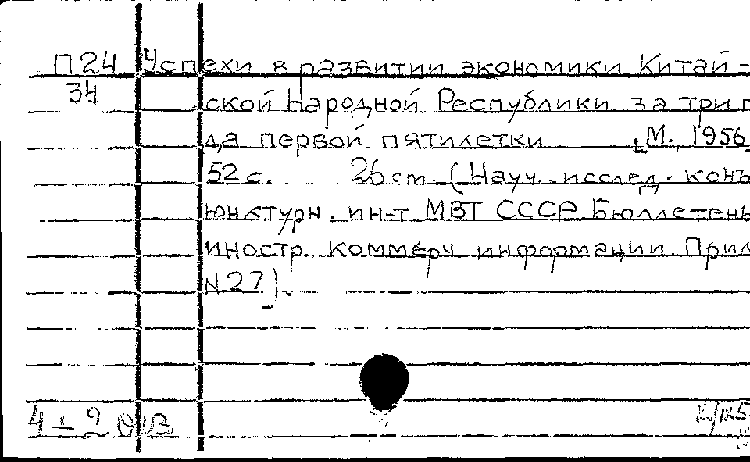 П24 Успехи в развитии экономики Китай-
34 ской Народной Республики за три г
да первой пятилетки М., 1956
52 с. 26 cm (Науч. исслед. конъ
юнктурн. ин-т МВТ СССР. Бюллетень
иностр. коммерч информации Прил
N27).